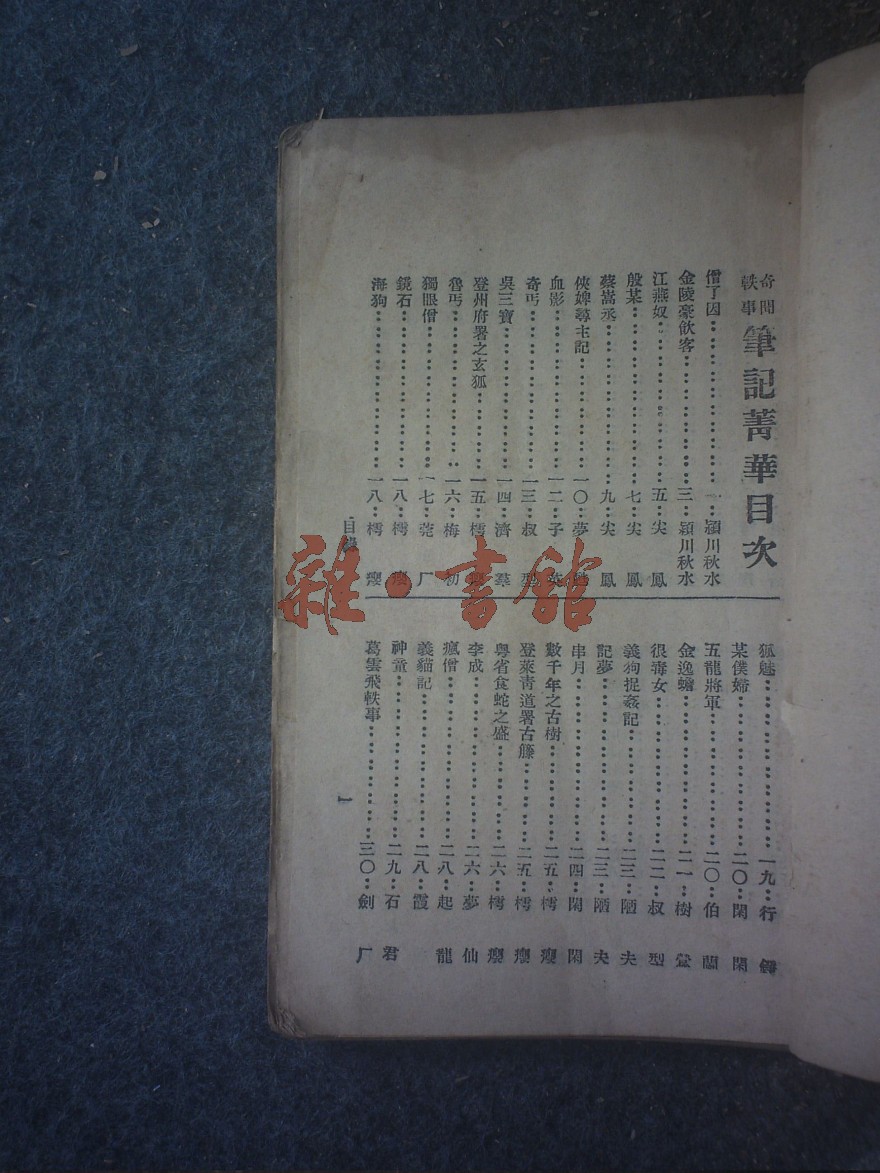 奇聞軼事筆記菁華目次
僧了因⋯⋯一⋯潁川秋水
金陵豪飲客⋯⋯三⋯潁川秋水
江燕奴⋯⋯五⋯尖鳳
殷某⋯⋯七⋯尖鳳
蔡嵩丞⋯⋯九⋯尖鳳
俠婢尋主記⋯⋯一〇⋯夢
血影⋯⋯一二⋯子英
奇丐⋯⋯一三⋯叔型
吳三寶⋯⋯一四⋯濟羣
登州府署之玄狐⋯⋯一五⋯樗癭
魯丐⋯⋯一六⋯梅初
獨眼僧⋯⋯一七⋯莞厂
鏡石⋯⋯一八⋯樗癭
海狗⋯⋯一八⋯樗癭
狐魅⋯⋯一九⋯行鐸
某僕婦⋯⋯二〇⋯閑閑
五龍將軍⋯⋯二〇⋯伯蘭
金逸蟾⋯⋯二一⋯樹聲
很毒女⋯⋯二二⋯叔型
義狗捉姦記⋯⋯二三⋯陋夫
記夢⋯⋯二三⋯陋夫
串月⋯⋯二四⋯閑閑
數千年之古樹⋯⋯二五⋯樗癭
登萊青道署古籐⋯⋯二五⋯樗癭
粵省食蛇之盛⋯⋯二六⋯樗癭
李成⋯⋯二六⋯夢仙
瘋僧⋯⋯二八⋯起龍
義貓記⋯⋯二八⋯霞
神童⋯⋯二九⋯石君
葛雲飛軼事⋯⋯三〇⋯劍厂
目錄
一
雜·書館